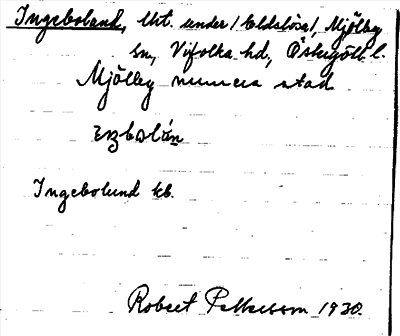 Ingebolund, lht. under /Eldslösa/, Mjölby
sn, Vifolka hd, Östergötl. l.
Mjölby numera stad
Ingebolund kb.
Robert Pettersson 1930.